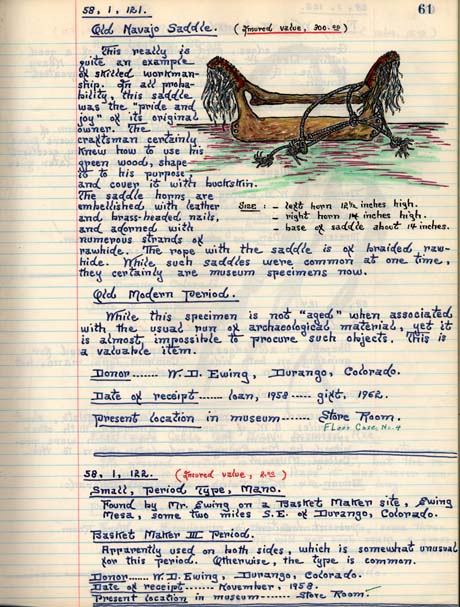 58, 1, 121.
61
Old Navajo Saddle. (Insured value, 300.00)
This really is
quite an example
of skilled workman-
ship. In all proba-
bility, this saddle
was the "pride and
joy" of its original
owner. The
craftsman certainly
knew how to use his
green wood, shape
it to his purpose,
and cover it with buckskin.
The saddle horns are
embellished with leather
and brass-headed nails,
and adorned with
numerous strands of
rawhide. The rope with the saddle is of braided raw-
hide. While such saddles were common at one time,
they certainly are museum specimens now.
Size: - left horn 12½ inches high.
- right horn 14 inches high.
- base of saddle about 14 inches.
Old Modern Period.
While this specimen is not "aged" when associated
with the usual run of archaeological material, yet it
is almost impossible to procure such objects. This is
a valuable item.
Donor ....... W. D. Ewing, Durango, Colorado.
Date of receipt ------- loan, 1958 ----- gift, 1962.
Present location in museum ------- Store Room.
Floor Case, No. 4
58, 1, 122. (Insured value, 2.00)
Small, Period Type, Mano.
Found by Mr. Ewing on a Basket Maker site, Ewing
Mesa, some two miles S.E. of Durango, Colorado.
Basket Maker III Period.
Apparently used on both sides, which is somewhat unusual
for this period. Otherwise, the type is common.
Donor ...... W. D. Ewing, Durango, Colorado.
Date of receipt ------- November, 1958.
Present location in museum ------ Store Room.